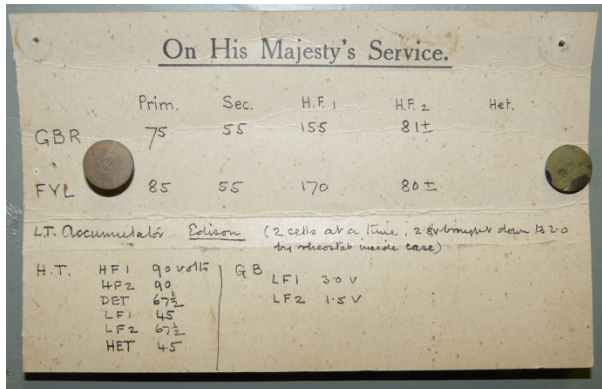 On His Majesty's Service.
Prim. Sec. H.F.1 H.F.2 Het.
GBR 75 55 155 81±
FYL 85 55 170 80±
L.T. Accumulator Edison (2 cells at a time, 2.8v brought down to 2.0
by rheostat inside case)
H.T. HF1 90 volts GB
HF2 90
LF1 3.0 V
DET 67½
LF2 1.5 V
LF1 45
LF2 67½
HET 45